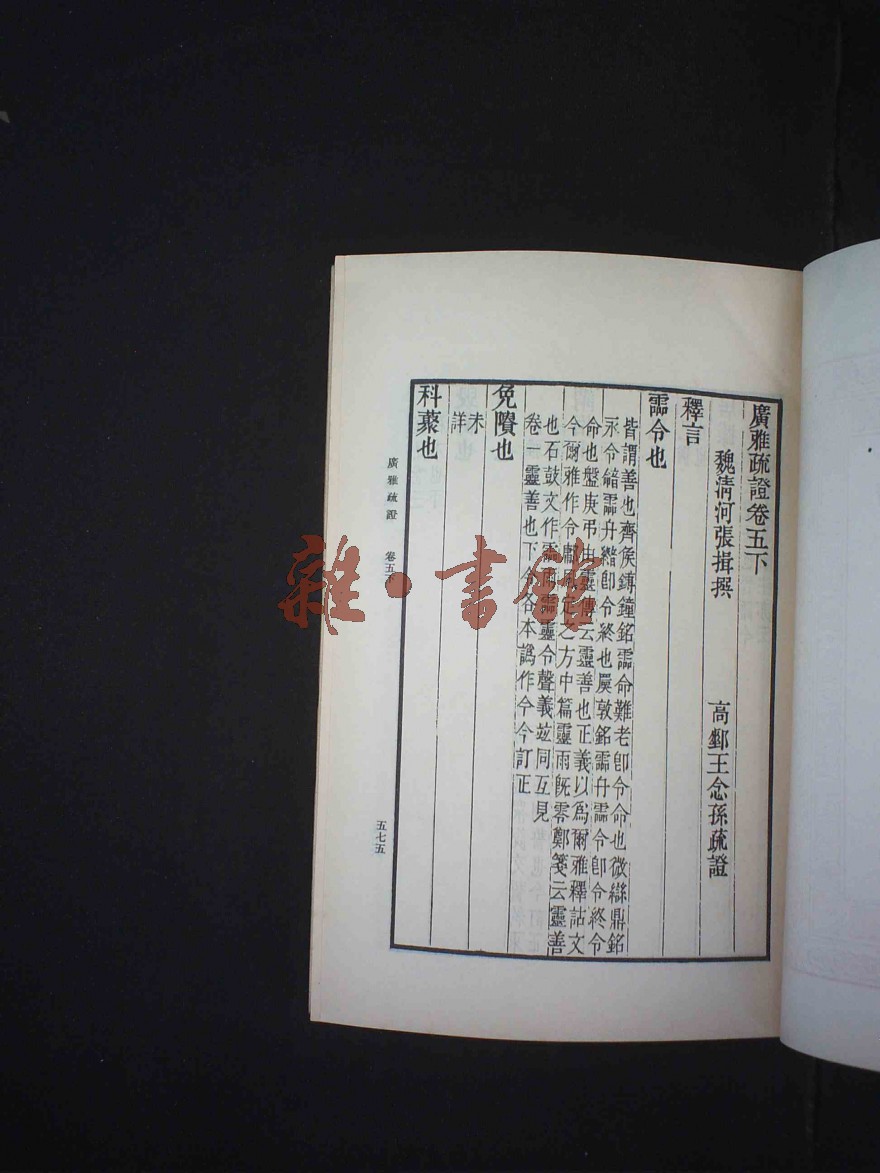 廣雅疏證卷五下
魏清河張揖撰 高郵王念孫疏證
釋言
霝令也
皆謂善也齊矦鎛鐘銘霝命難老卽令命也微䜌鼎銘
永令霝冬卽令終也𢊾敦銘霝冬霝令卽令終令
命也盤庚弔由靈傳云靈善也正義以爲爾雅釋詁文
今爾雅作令鄘風定之方中篇靈雨旣零鄭箋云靈善
也石鼓文作霝雨霝靈令聲義竝同互見
卷一靈善也下令各本譌作今今訂正
免隫也
未
詳
科蘽也
廣雅疏證 卷五下
五七五
雜·書館